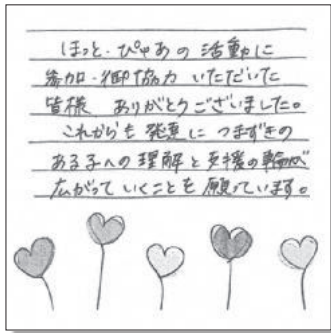 ほっと・ぴゅあの活動に
参加・御協力いただいた
皆様　ありがとうございました。
これからも発達につまずきの
ある子への理解と支援の輪が
広がっていくことを願っています。